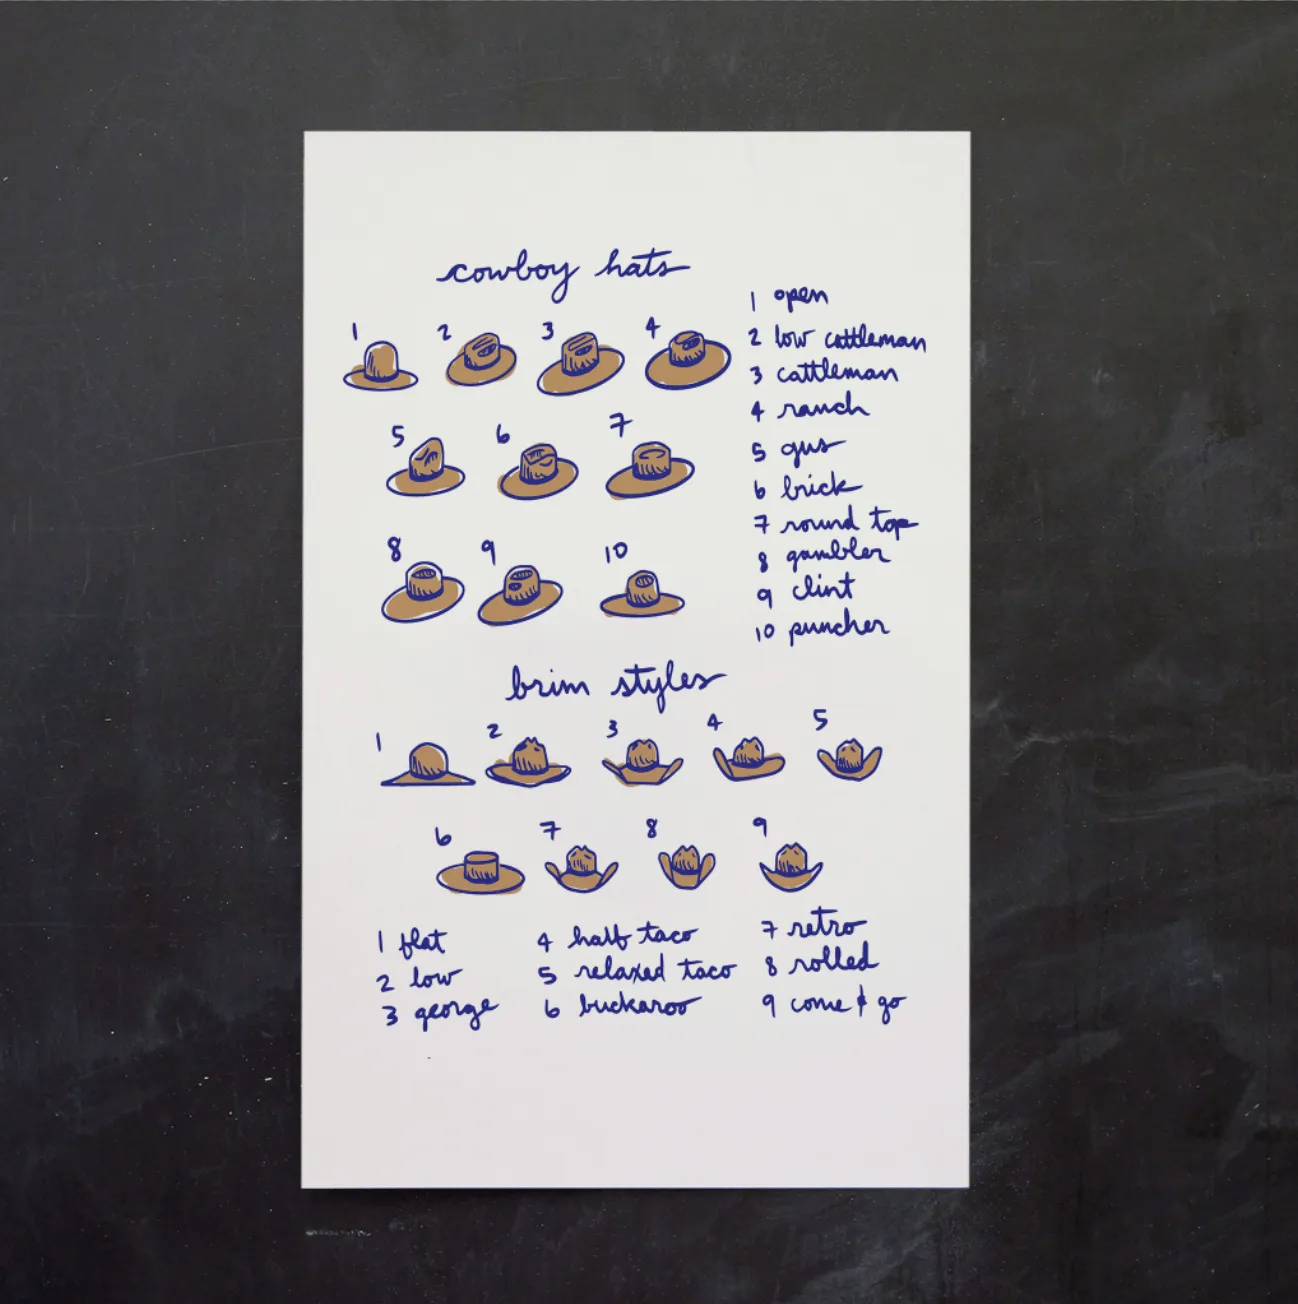 cowboy hats
1 2 3 4
5 6 7
8 9 10
1 open
2 low cattleman
3 cattleman
4 ranch
5 gus
6 brick
7 round top
8 gambler
9 clint
10 puncher
brim styles
1 2 3 4 5
6 7 8 9
1 flat
2 low
3 george
4 half taco
5 relaxed taco
6 buckaroo
7 retro
8 rolled
9 come & go